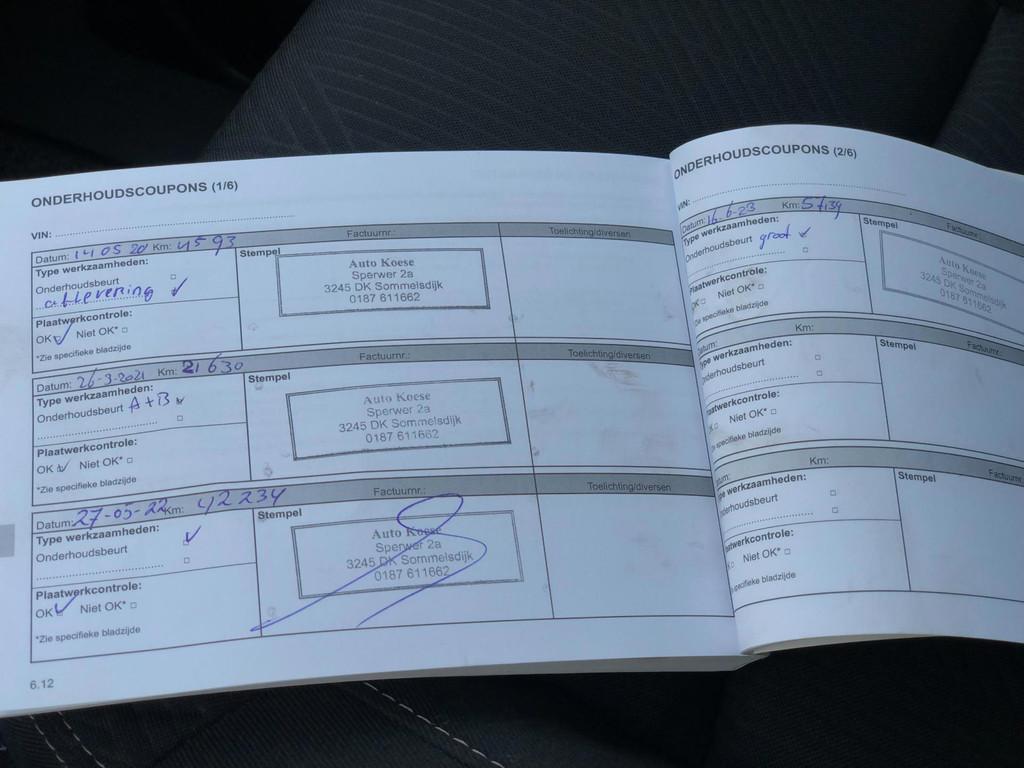 ONDERHOUDSCOUPONS (1/6)
VIN:
Datum: 14 05 20 Km: 4593 Factuurnr.: Toelichting/diversen
Type werkzaamheden:
Onderhoudsbeurt
aflevering
Plaatwerkcontrole:
OK Niet OK*
*Zie specifieke bladzijde
Stempel
Auto Koese
Sperwer 2a
3245 DK Sommelsdijk
0187 611662
Datum: 26-3-2021 Km: 21630 Factuurnr.: Toelichting/diversen
Type werkzaamheden:
Onderhoudsbeurt A+B
Plaatwerkcontrole:
OK Niet OK*
*Zie specifieke bladzijde
Stempel
Auto Koese
Sperwer 2a
3245 DK Sommelsdijk
0187 611662
Datum: 27-05-22 Km: 42234 Factuurnr.: Toelichting/diversen
Type werkzaamheden:
Onderhoudsbeurt
Plaatwerkcontrole:
OK Niet OK*
*Zie specifieke bladzijde
Stempel
Auto Koese
Sperwer 2a
3245 DK Sommelsdijk
0187 611662
6.12
ONDERHOUDSCOUPONS (2/6)
VIN:
Datum: 16-6-23 Km: 57139 Factuurnr.:
Type werkzaamheden:
Onderhoudsbeurt groot
Plaatwerkcontrole:
OK Niet OK*
Zie specifieke bladzijde
Stempel
Auto Koese
Sperwer 2a
3245 DK Sommelsdijk
0187 611662
Datum: Km: Factuurnr.:
Type werkzaamheden:
Onderhoudsbeurt
Plaatwerkcontrole:
OK Niet OK*
specifieke bladzijde
Stempel
Km: Factuurnr.:
werkzaamheden:
Onderhoudsbeurt
Plaatwerkcontrole:
Niet OK*
specifieke bladzijde
Stempel